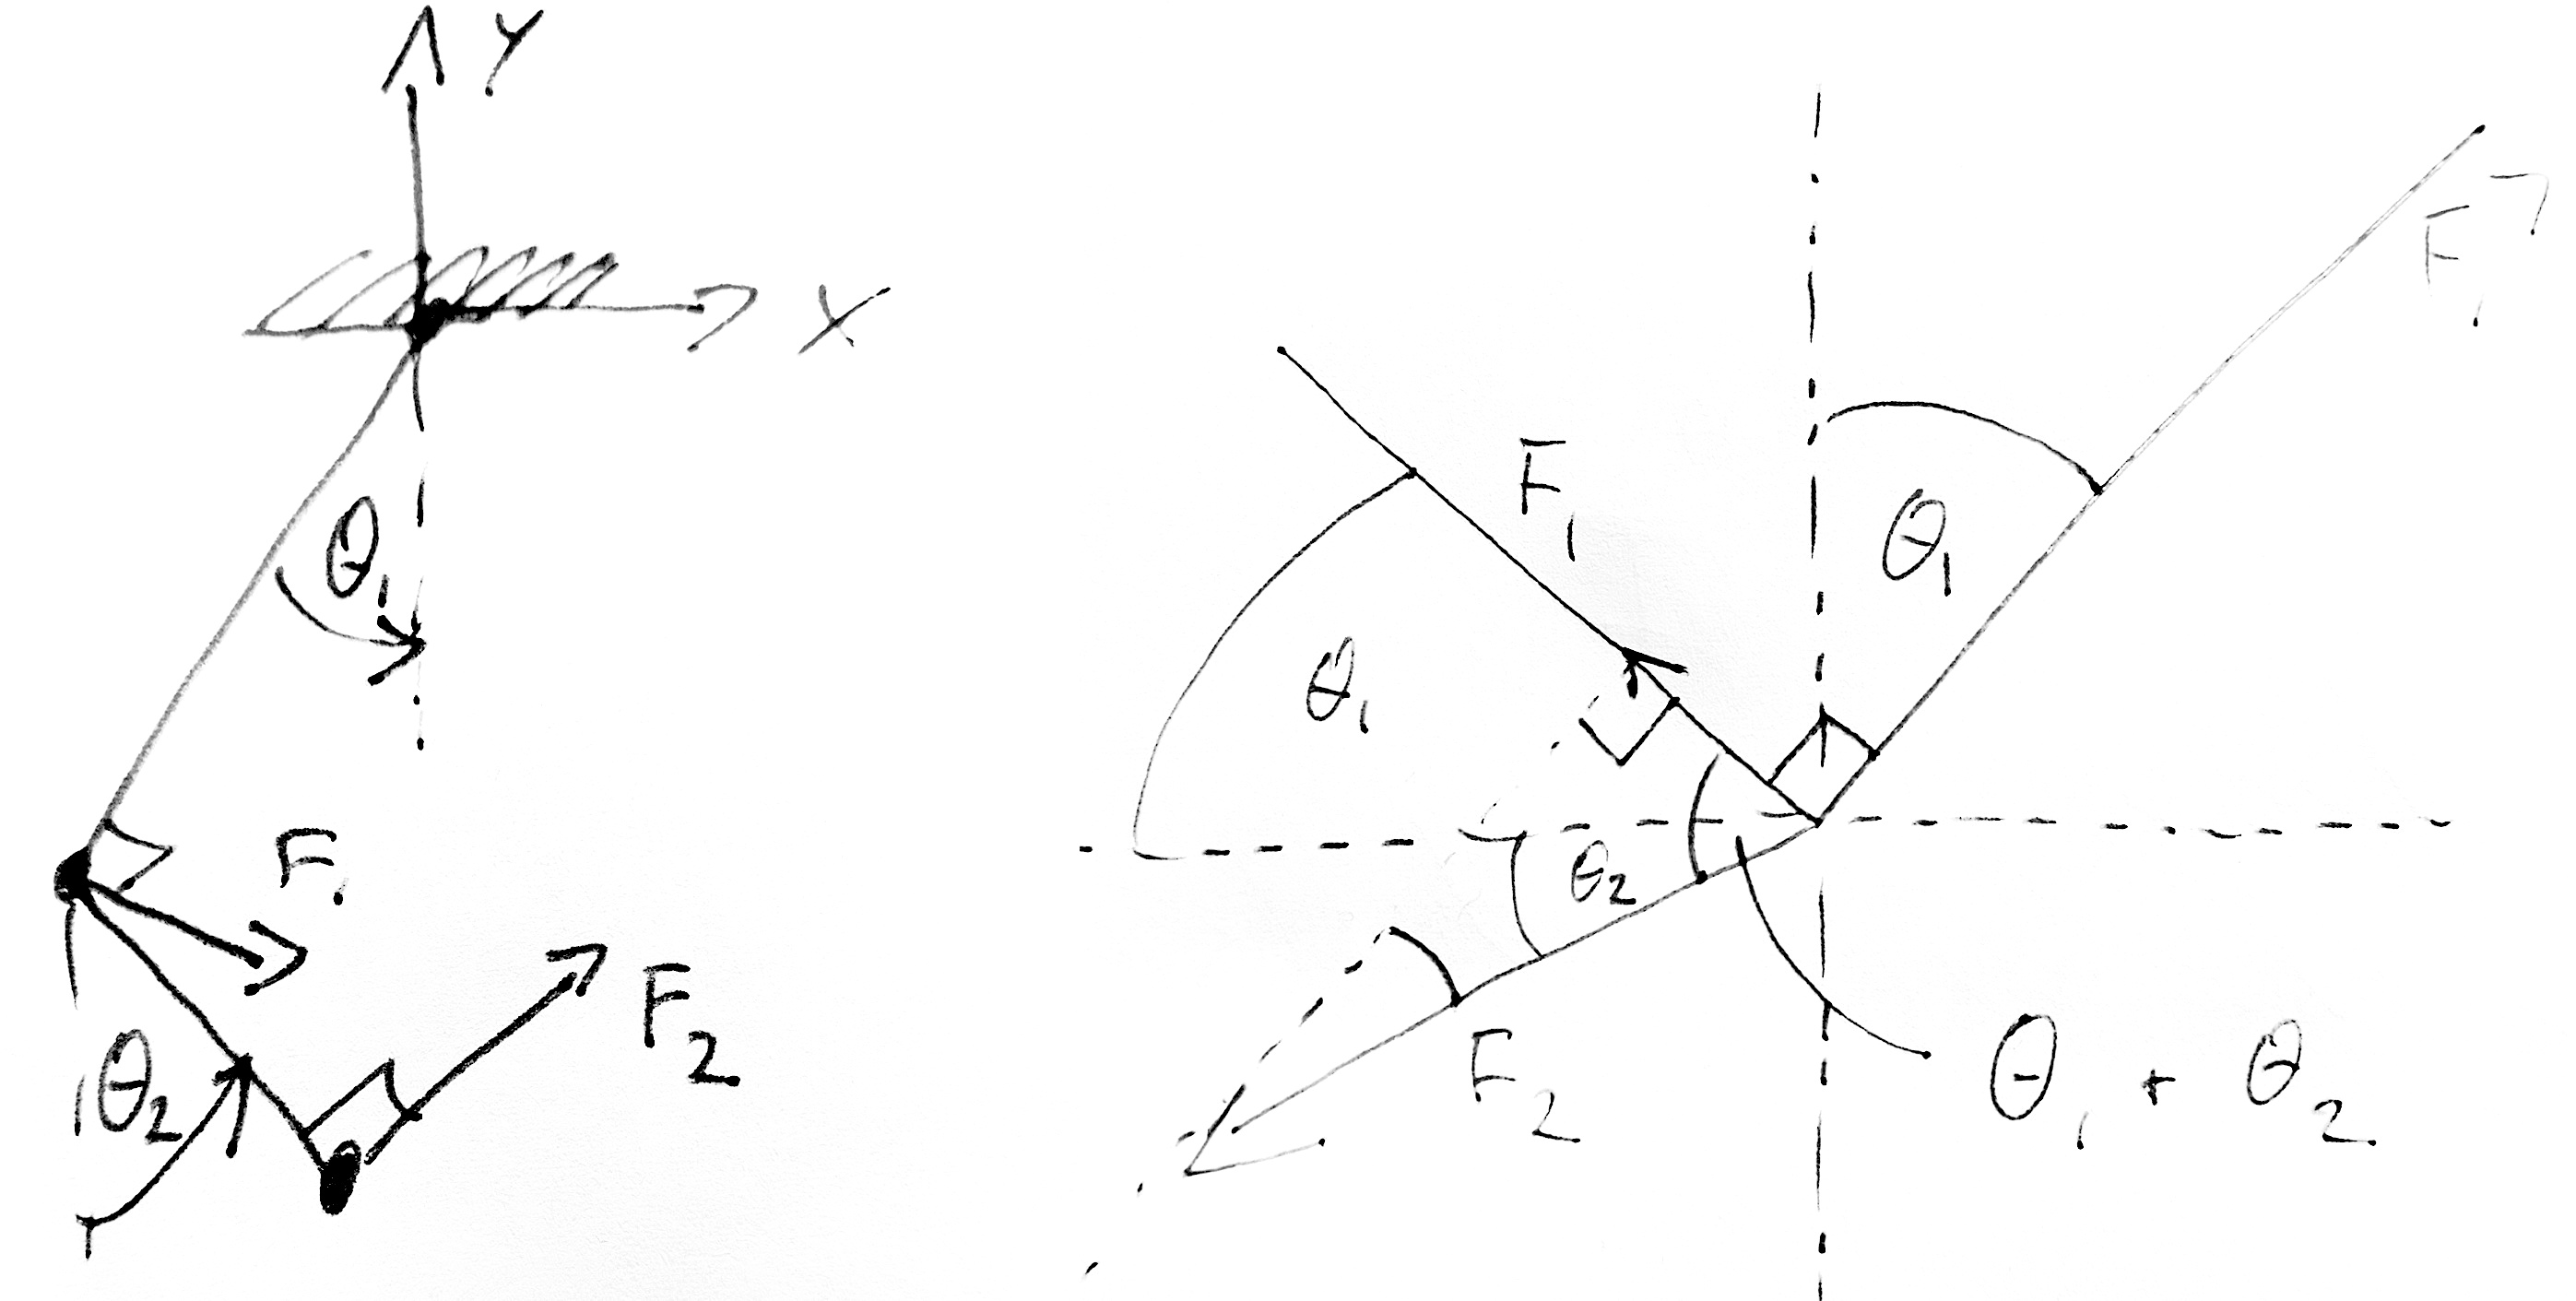 Y
X
θ₁
F₁
F₂
θ₂
F₁
F₁
θ₁
θ₁
θ₂
F₂
θ₁ + θ₂